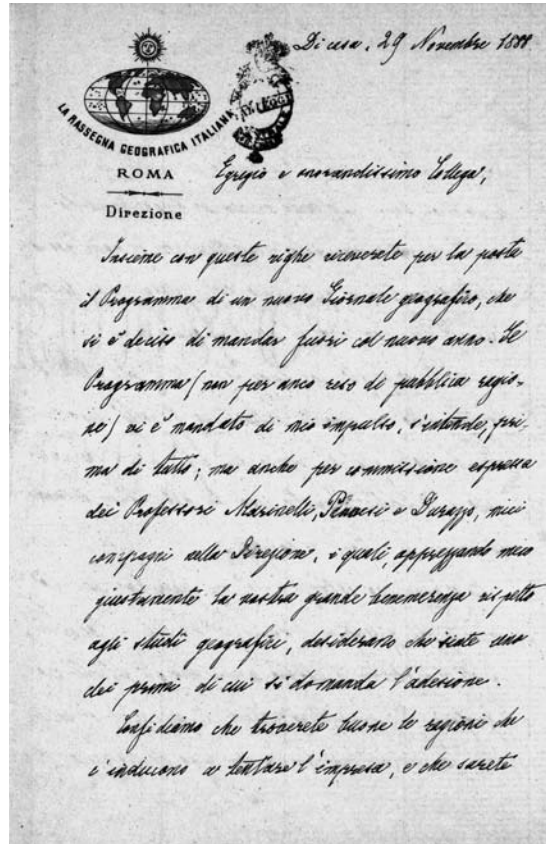 Di casa, 29 Novembre 1888
LA RASSEGNA GEOGRAFICA ITALIANA
ROMA
Direzione
Egregio e onorandissimo Collega,
Insieme con queste righe riceverete per la posta
il Programma di un nuovo Giornale geografico, che
si è deciso di mandar fuori col nuovo anno. Il
Programma (non per anco reso di pubblica ragio-
ne) vi è mandato di mio impulso, s'intende, pri-
ma di tutto; ma anche per commissione espressa
dei Professori Marinelli, Pennesi e Durazzo, miei
compagni nella Direzione, i quali, apprezzando meco
giustamente la vostra grande benemerenza rispetto
agli studi geografici, desiderano che siate uno
dei primi di cui si domanda l'adesione.
Confidiamo che troverete buone le ragioni che
c'inducono a tentare l'impresa, e che sarete